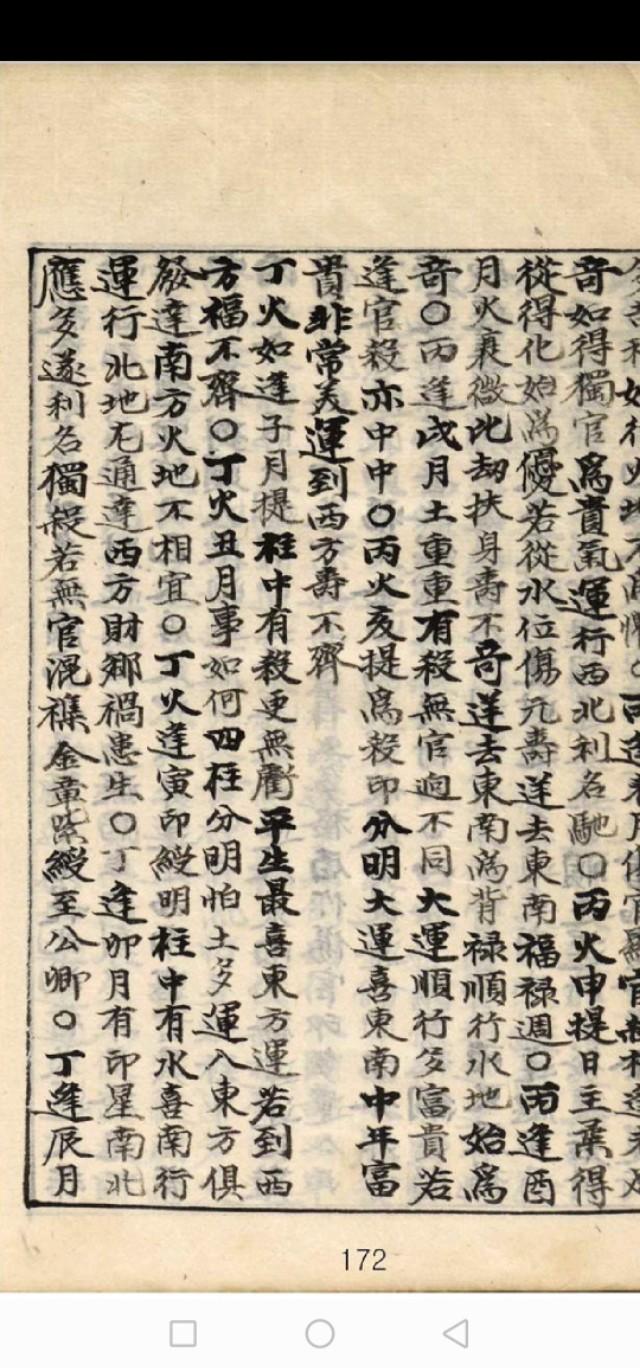 奇如得獨官爲貴氣運行西北利名馳○丙火申提日主柔得
從得化始爲優若從水位傷元壽逆去東南福祿週○丙逢酉
月火衰微比劫扶身壽不奇逆去東南爲背祿順行水地始爲
奇○丙逢戌月土重重有殺無官逈不同大運順行多富貴若
逢官殺亦中中○丙火亥提爲殺印分明大運喜東南中年富
貴非常美運到西方壽不齊
丁火如逢子月提柱中有殺更無衝平生最喜東方運若到西
方福不齊○丁火丑月事如何四柱分明怕土多運入東方俱
發達南方火地不相宜○丁火逢寅印綬明柱中有水喜南行
運行北地尤通達西方財鄉禍患生○丁逢卯月有印星南北
應多遂利名獨殺若無官混雜金章紫綬至公卿○丁逢辰月
172